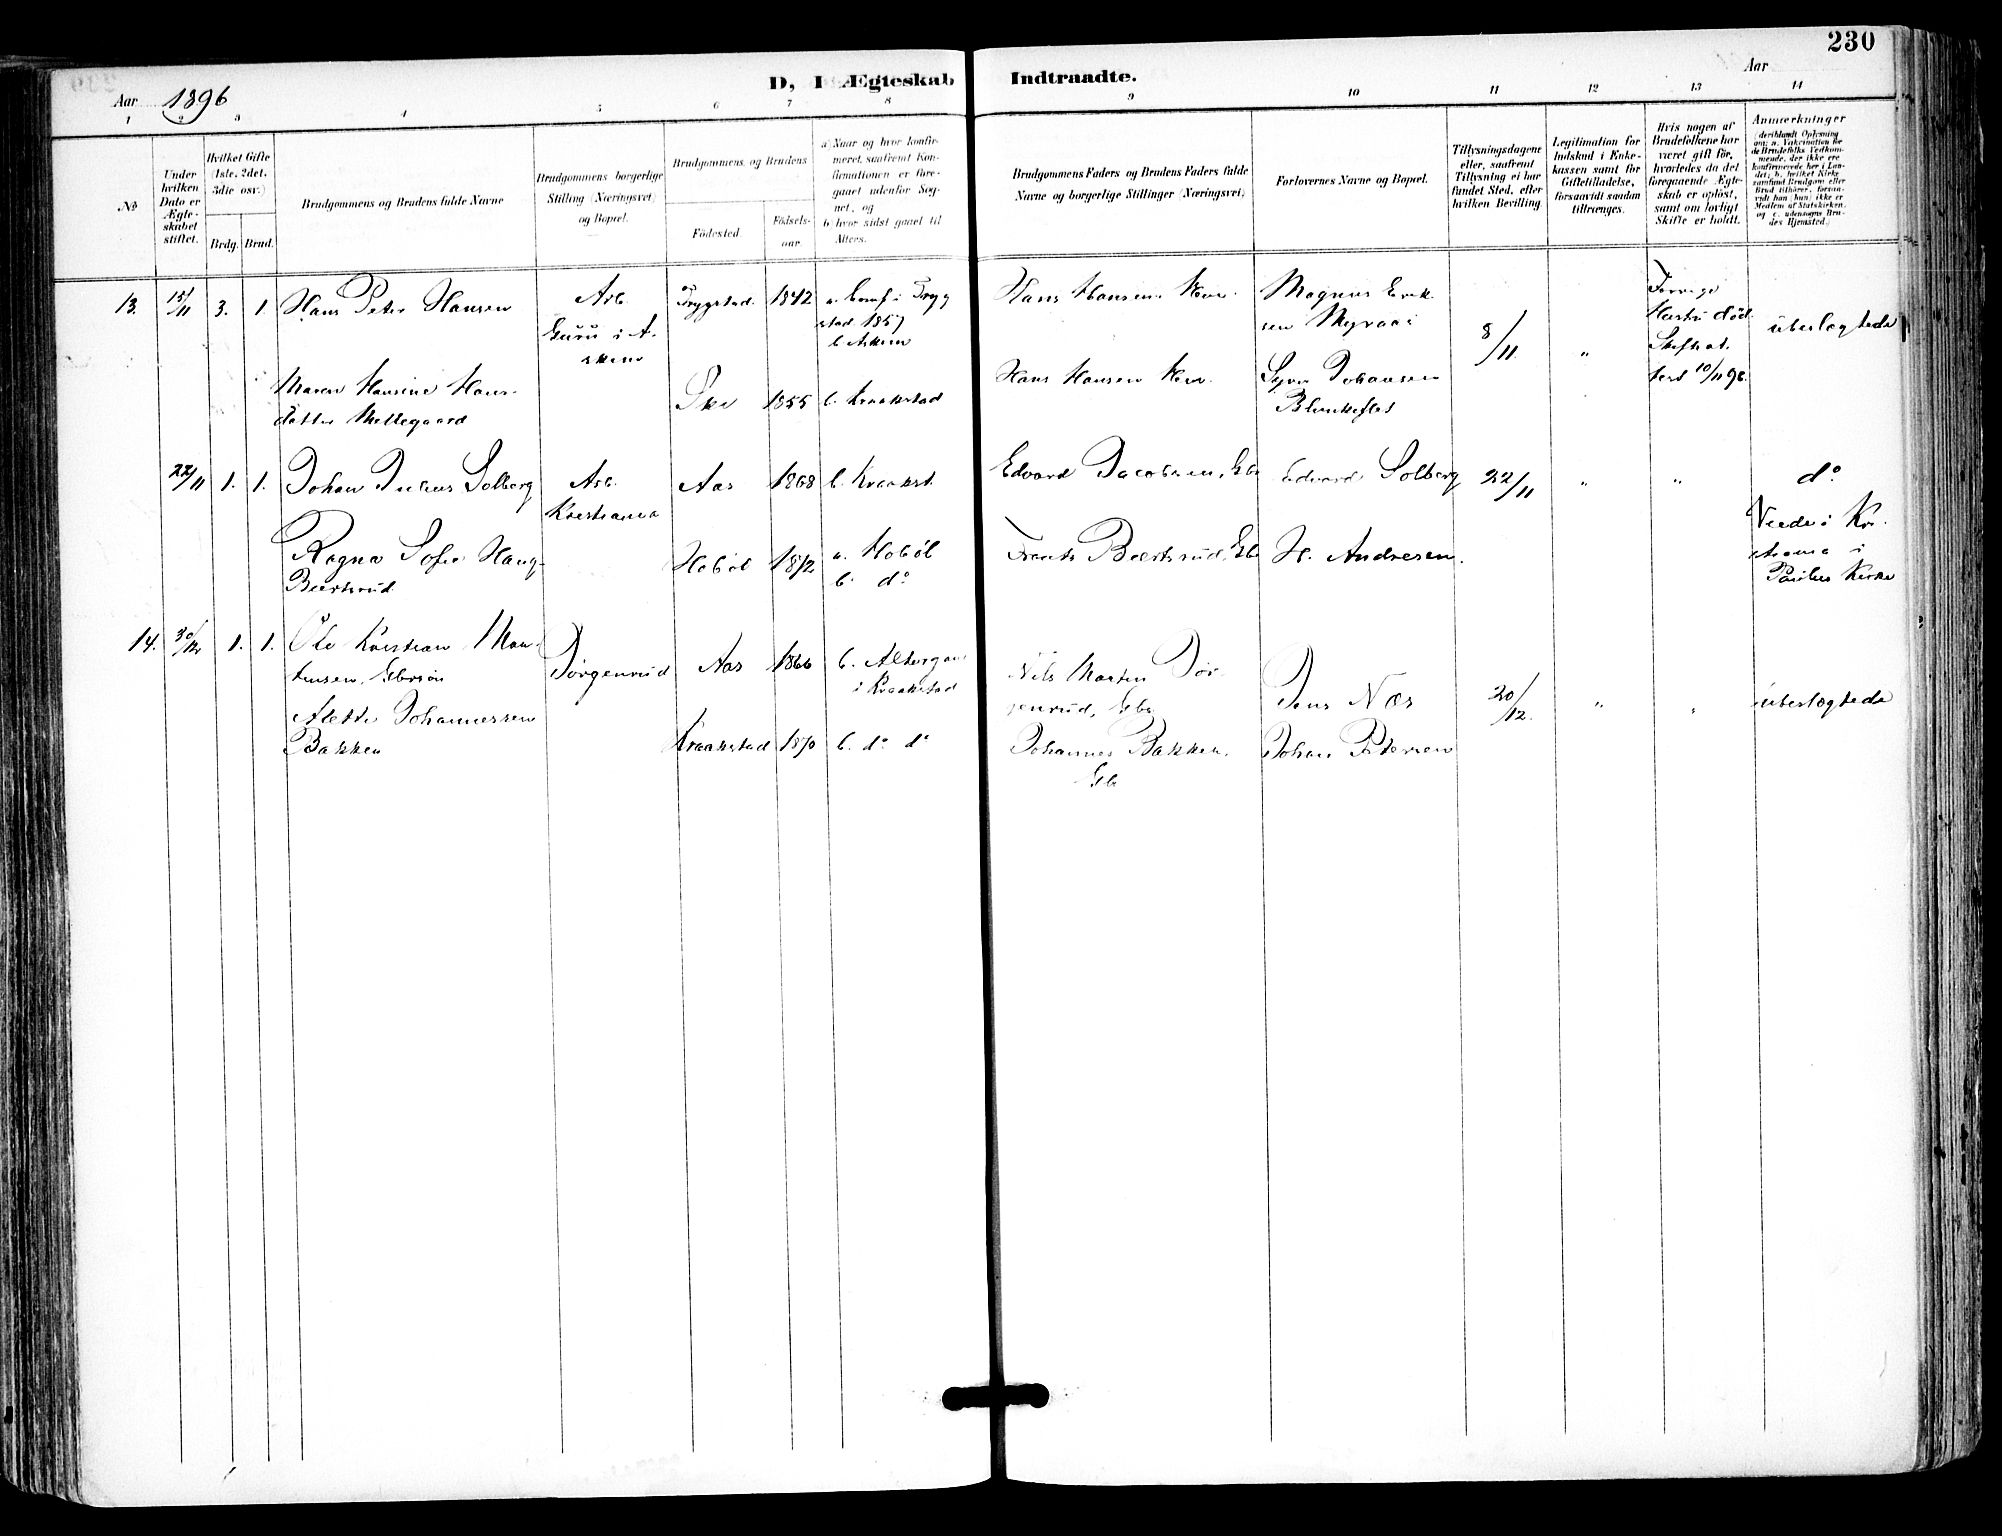 230
D, I Ægteskab Indtraadte.
Aar 1896
Aar
1 2 3 4 5 6 7 8 9 10 11 12 13 14
№
Under hvilken Dato er Ægteskabet stiftet.
Hvilket Gifte (1ste, 2det, 3die osv.)
Brdg. Brud.
Brudgommens og Brudens fulde Navne
Brudgommens borgerlige Stilling (Næringsvei) og Bopæl.
Brudgommens og Brudens
Fødested
Fødselsaar.
a) Naar og hvor konfirmeret, saafremt Konfirmationen er foregaaet udenfor Sognet, og
b) hvor sidst gaaet til Alters.
Brudgommens Faders og Brudens Faders fulde Navne og borgerlige Stillinger (Næringsvei)
Forlovernes Navne og Bopæl.
Tillysningsdagene eller, saafremt Tillysning ei har fundet Sted, efter hvilken Bevilling.
Legitimation for Indskud i Enkekassen samt for Giftetilladelse, forsaavidt saadan tiltrænges.
Hvis nogen af Brudefolkene har været gift før, hvorledes da det foregaaende Ægteskab er opløst, samt om lovligt Skifte er holdt.
Anmærkninger
(deriblandt Oplysning om: a. Vakcination for de Brudefolks Vedkommende, der ikke ere konfirmerede her i Landet; b. hvilket Kirkesamfund Brudgom eller Brud tilhører, forsaavidt han (hun) ikke er Medlem af Statskirken, og c. udensogns Brudes Hjemsted.)
13. 15/11 3. 1. Hans Peter Hansen
Arb.
i Askim
Trygstad 1842
a. Conf. i Trygstad 1857
b. Askim
Hans Hansen
Magnus Eriksen Myraas
8/11 "
Forrige Hustru død
10/11 96.
ubeslægtede
Maren Hansine Hansdatter Mellegaard
Ski 1855 b. Kraakstad
Hans Hansen
Johansen
22/11 1. 1. Johan Julius Solberg
Arb. Kristiania
Aas 1868 b. Kraakst.
Edvard Jacobsen, Gbr
Edvard Solberg
22/11 " " do
Ragna Sofie Haug-Beertsrud
Hobøl 1872
a. Hobøl
b. do
Frants Beertsrud, Gbr
H. Andresen.
Viede i Kristiania i Paulus Kirke
14. 30/12 1. 1. Ole Kristian Martinsen, Gbrsøn
Jørgenrud
Aas 1866
b. Altergang i Kraakstad
Nils Martin Jørgenrud, Gbr
Jens Næs
20/12. " " ubeslægtede
Alette Johannessen Bakken
Kraakstad 1870 b. do do
Johannes Bakken, Gb
Johan Pedersen